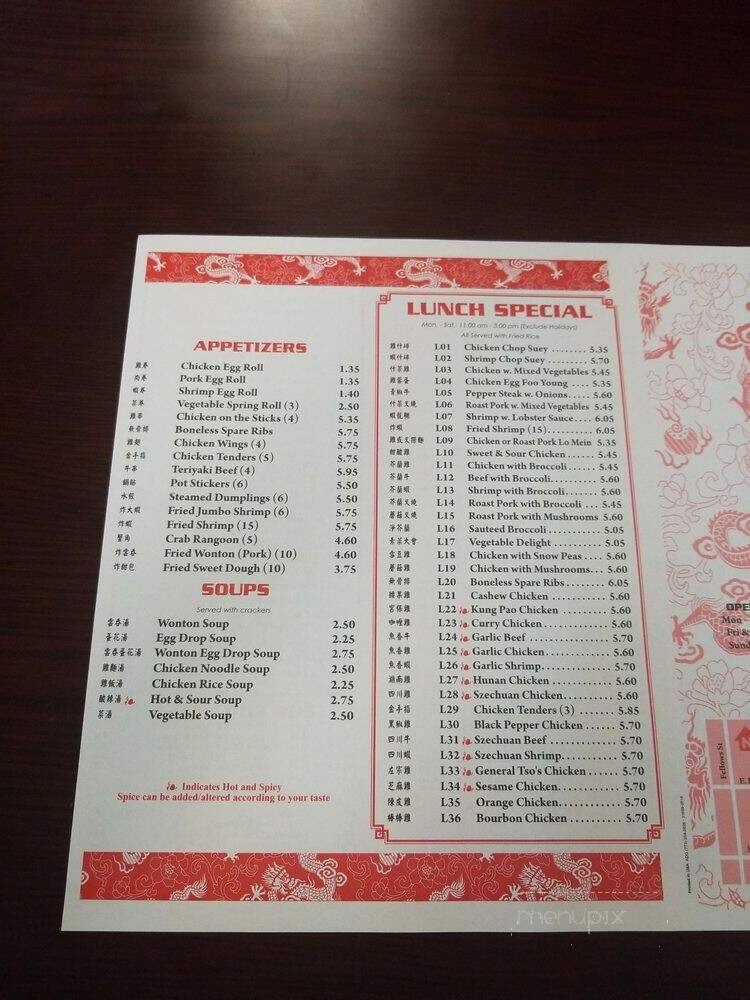 APPETIZERS
雞卷 Chicken Egg Roll 1.35
肉卷 Pork Egg Roll 1.35
蝦卷 Shrimp Egg Roll 1.40
菜卷 Vegetable Spring Roll (3) 2.50
雞串 Chicken on the Sticks (4) 5.35
無骨排 Boneless Spare Ribs 5.75
雞翅 Chicken Wings (4) 5.75
金手指 Chicken Tenders (5) 5.75
牛串 Teriyaki Beef (4) 5.95
鍋貼 Pot Stickers (6) 5.50
水餃 Steamed Dumplings (6) 5.50
炸大蝦 Fried Jumbo Shrimp (6) 5.75
炸蝦 Fried Shrimp (15) 5.75
蟹角 Crab Rangoon (5) 4.60
炸雲吞 Fried Wonton (Pork) (10) 4.60
炸甜包 Fried Sweet Dough (10) 3.75
SOUPS
Served with crackers
雲吞湯 Wonton Soup 2.50
蛋花湯 Egg Drop Soup 2.25
雲吞蛋花湯 Wonton Egg Drop Soup 2.75
雞麵湯 Chicken Noodle Soup 2.50
雞飯湯 Chicken Rice Soup 2.25
酸辣湯 Hot & Sour Soup 2.75
菜湯 Vegetable Soup 2.50
Indicates Hot and Spicy
Spice can be added/altered according to your taste
LUNCH SPECIAL
Mon. - Sat.: 11:00 am - 3:00 pm (Exclude Holidays)
All Served with Fried Rice
雞什碎 L01 Chicken Chop Suey ........ 5.35
蝦什碎 L02 Shrimp Chop Suey ........ 5.70
什菜雞 L03 Chicken w. Mixed Vegetables 5.45
雞蓉蛋 L04 Chicken Egg Foo Young .... 5.35
青椒牛 L05 Pepper Steak w. Onions ..... 5.60
什菜叉燒 L06 Roast Pork w. Mixed Vegetables 5.45
蝦龍糊 L07 Shrimp w. Lobster Sauce.... 6.05
炸蝦 L08 Fried Shrimp (15).......... 6.05
雞或叉撈麵 L09 Chicken or Roast Pork Lo Mein 5.35
甜酸雞 L10 Sweet & Sour Chicken ...... 5.45
芥蘭雞 L11 Chicken with Broccoli ...... 5.45
芥蘭牛 L12 Beef with Broccoli.......... 5.60
芥蘭蝦 L13 Shrimp with Broccoli....... 5.60
芥蘭叉燒 L14 Roast Pork with Broccoli ... 5.45
蘑菇叉燒 L15 Roast Pork with Mushrooms 5.60
淨芥蘭 L16 Sauteed Broccoli ........... 5.05
素菜大會 L17 Vegetable Delight .......... 5.05
雪豆雞 L18 Chicken with Snow Peas .... 5.60
蘑菇雞 L19 Chicken with Mushrooms... 5.60
無骨排 L20 Boneless Spare Ribs ........ 6.05
腰果雞 L21 Cashew Chicken ........... 5.60
宮保雞 L22 Kung Pao Chicken ......... 5.60
咖喱雞 L23 Curry Chicken............. 5.60
魚香牛 L24 Garlic Beef ................ 5.70
魚香雞 L25 Garlic Chicken............. 5.60
魚香蝦 L26 Garlic Shrimp.............. 5.70
湖南雞 L27 Hunan Chicken ............ 5.60
四川雞 L28 Szechuan Chicken.......... 5.60
金手指 L29 Chicken Tenders (3) ....... 5.85
黑椒雞 L30 Black Pepper Chicken ...... 5.70
四川牛 L31 Szechuan Beef ............. 5.70
四川蝦 L32 Szechuan Shrimp........... 5.70
左宗雞 L33 General Tso's Chicken ...... 5.70
芝麻雞 L34 Sesame Chicken............ 5.70
陳皮雞 L35 Orange Chicken............ 5.70
棒棒雞 L36 Bourbon Chicken .......... 5.70
OPE
Mon -
Fri &
Sund
N
Fellows St
E.
menupix